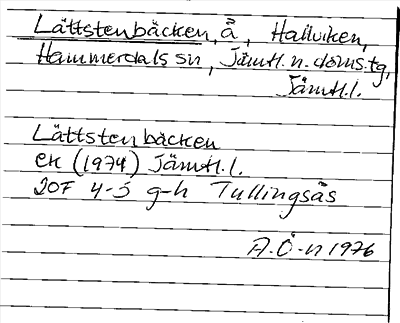 Lättstenbäcken, å, Hallviken,
Hammerdals sn, Jämtl. n. doms.tg,
Jämtl.l.
Lättstenbäcken
ek (1974) Jämtl.l.
20F 4-5 g-h Tullingsås
A.Ö-n 1976